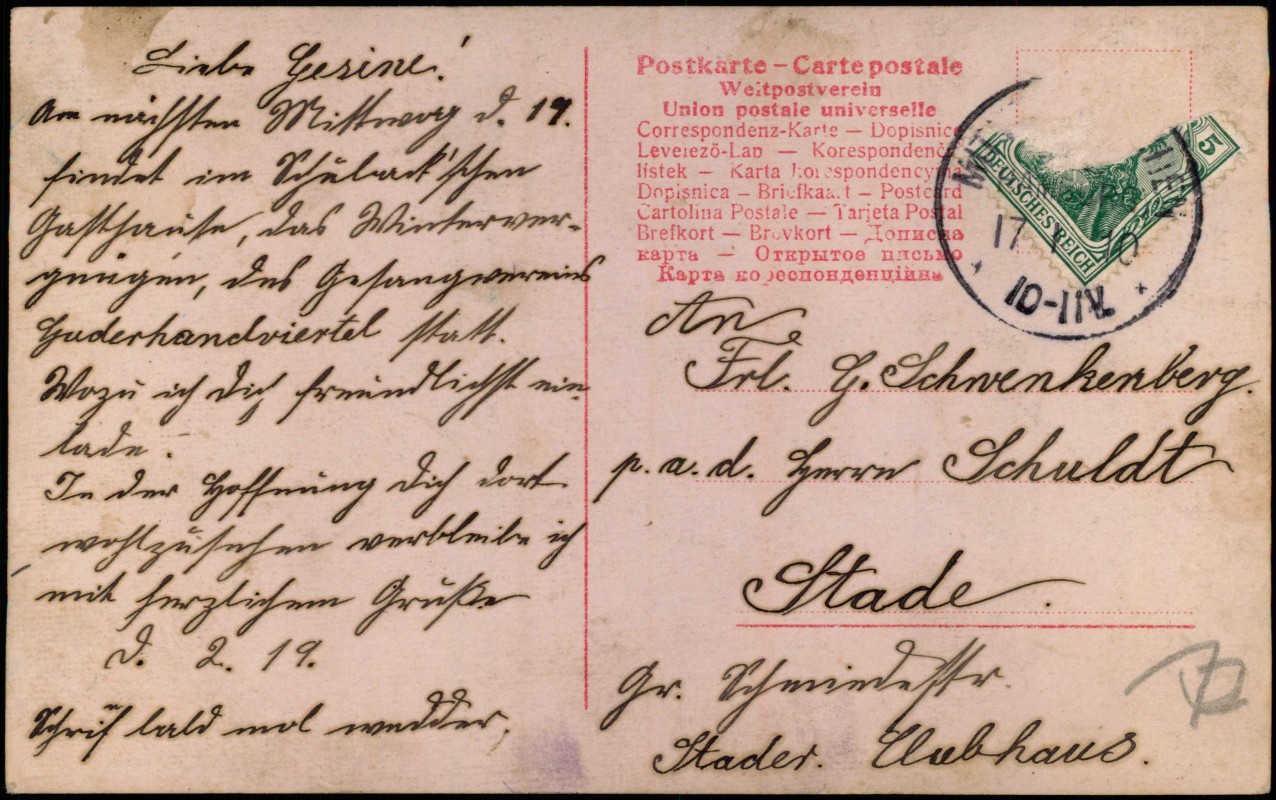 Liebe Gesine!
Am nächsten Mittwoch d. 19.
findet im Schuback'schen
Gasthause, das Winterver-
gnügen, des Gesangvereins
Guderhandviertel statt.
Wozu ich dich freundlichst ein-
lade.
In der Hoffnung dich dort
wohlzusehen verbleibe ich
mit herzlichem Gruße
D. 2. 19.
Schrif bald mol wedder,
Postkarte – Carte postale
Weltpostverein
Union postale universelle
Correspondenz-Karte — Dopisnice
Levelező-Lap — Korespondenční
lístek — Karta korespondencyjna
Dopisnica — Briefkaart — Postcard
Cartolina Postale — Tarjeta Postal
Brefkort — Brevkort — Дописна
карта — Открытое письмо
Карта кореспонденційна
5
DEUTSCHES REICH
17.
10-11V.
An
Frl. G. Schwenkenberg.
p. a. d. Herrn Schuldt
Stade.
Gr. Schmiedestr.
Stader. Clubhaus.